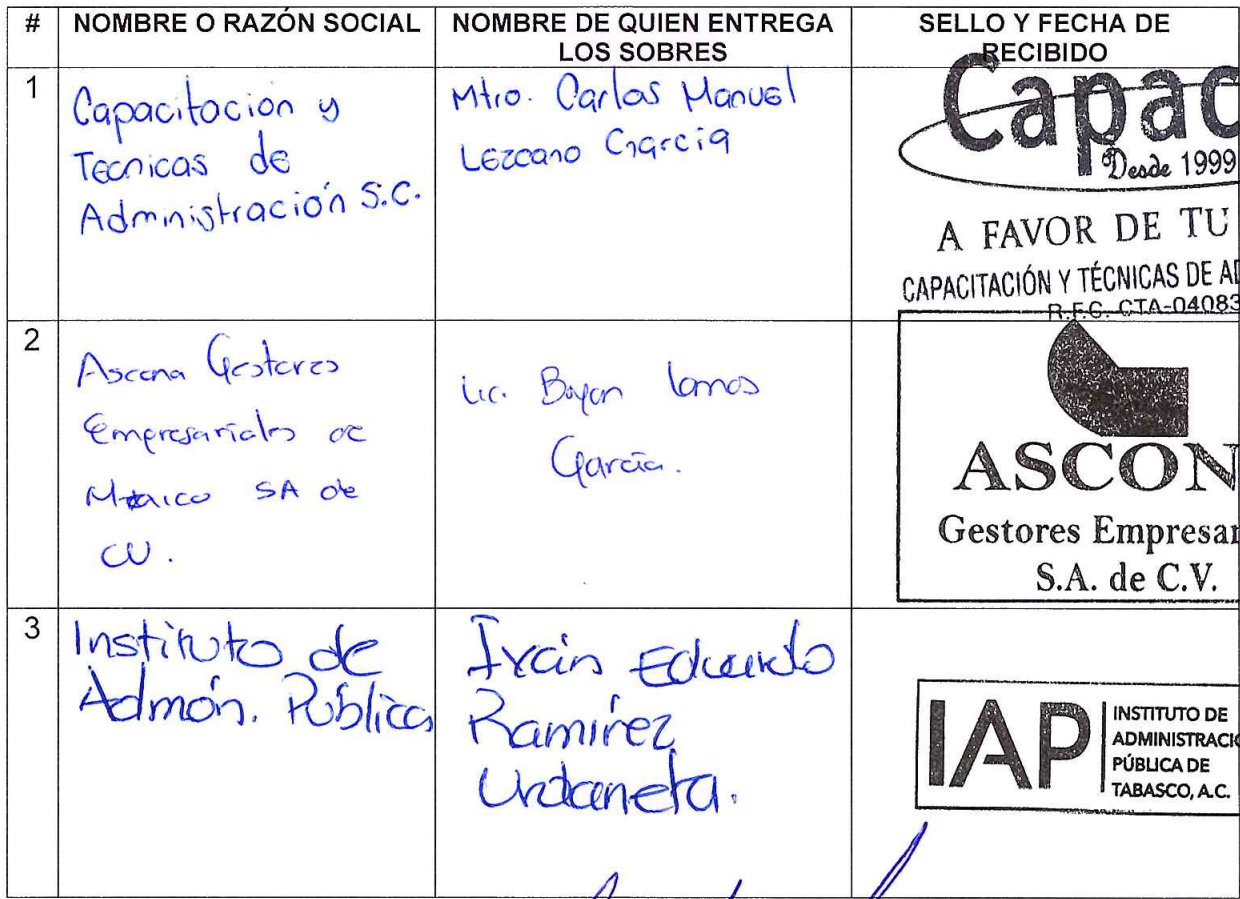 # NOMBRE O RAZÓN SOCIAL NOMBRE DE QUIEN ENTREGA LOS SOBRES SELLO Y FECHA DE RECIBIDO
1
Capacitacion y
Tecnicas de
Administración S.C.
Mtro. Carlos Manuel
Lezcano García
Capac
Desde 1999
A FAVOR DE TU
CAPACITACIÓN Y TÉCNICAS DE AD
R.F.C. CTA-04083
2
Ascona Gestores
Empresariales de
México SA de
CV.
Lic. Lamos
García.
ASCON
Gestores Empresar
S.A. de C.V.
3
Instituto de
Admón. Pública
Iván Eduardo
Ramírez
Urdaneta.
IAP
INSTITUTO DE
ADMINISTRACIÓ
PÚBLICA DE
TABASCO, A.C.